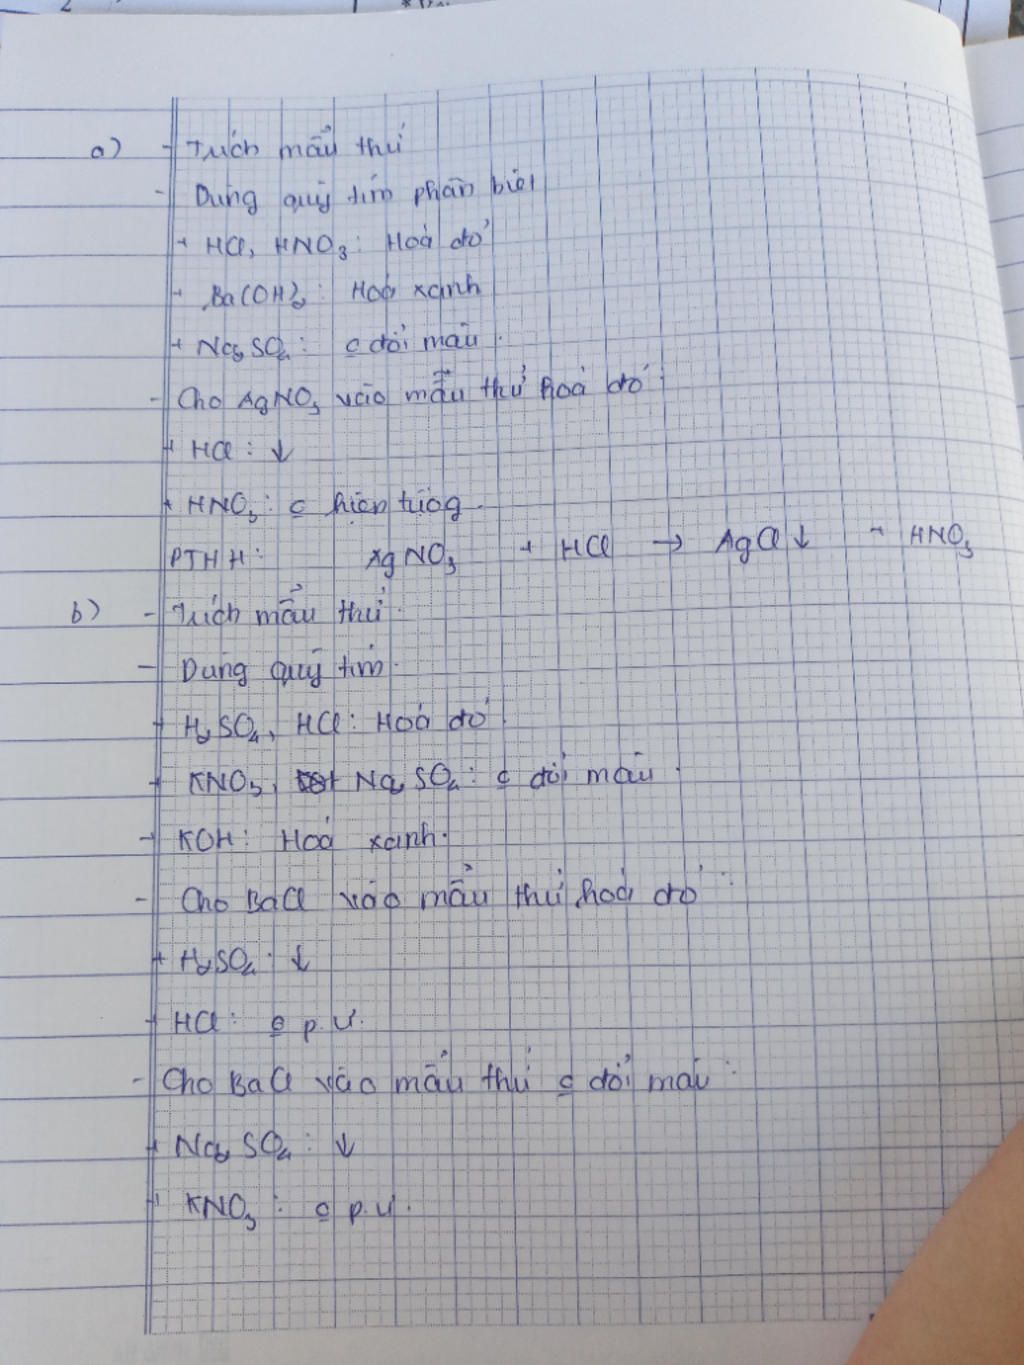 a) - Trích mẫu thử
- Dùng quỳ tím phân biệt
+ HCl, HNO3: Hoá đỏ
+ Ba(OH)2: Hoá xanh
+ Na2SO4: o đổi màu.
- Cho AgNO3 vào mẫu thử hoá đỏ:
+ HCl: ↓
+ HNO3: o hiện tượg.
PTHH: AgNO3 + HCl → AgCl↓ + HNO3
b) - Trích mẫu thử.
- Dùng quỳ tím.
+ H2SO4, HCl: Hoá đỏ
+ KNO3, Na2SO4: o đổi màu.
- KOH: Hoá xanh.
- Cho BaCl vào mẫu thử hoá đỏ:
+ H2SO4: ↓
+ HCl: o p.ư.
- Cho BaCl vào mẫu thử o đổi màu:
+ Na2SO4: ↓
+ KNO3: o p.ư.